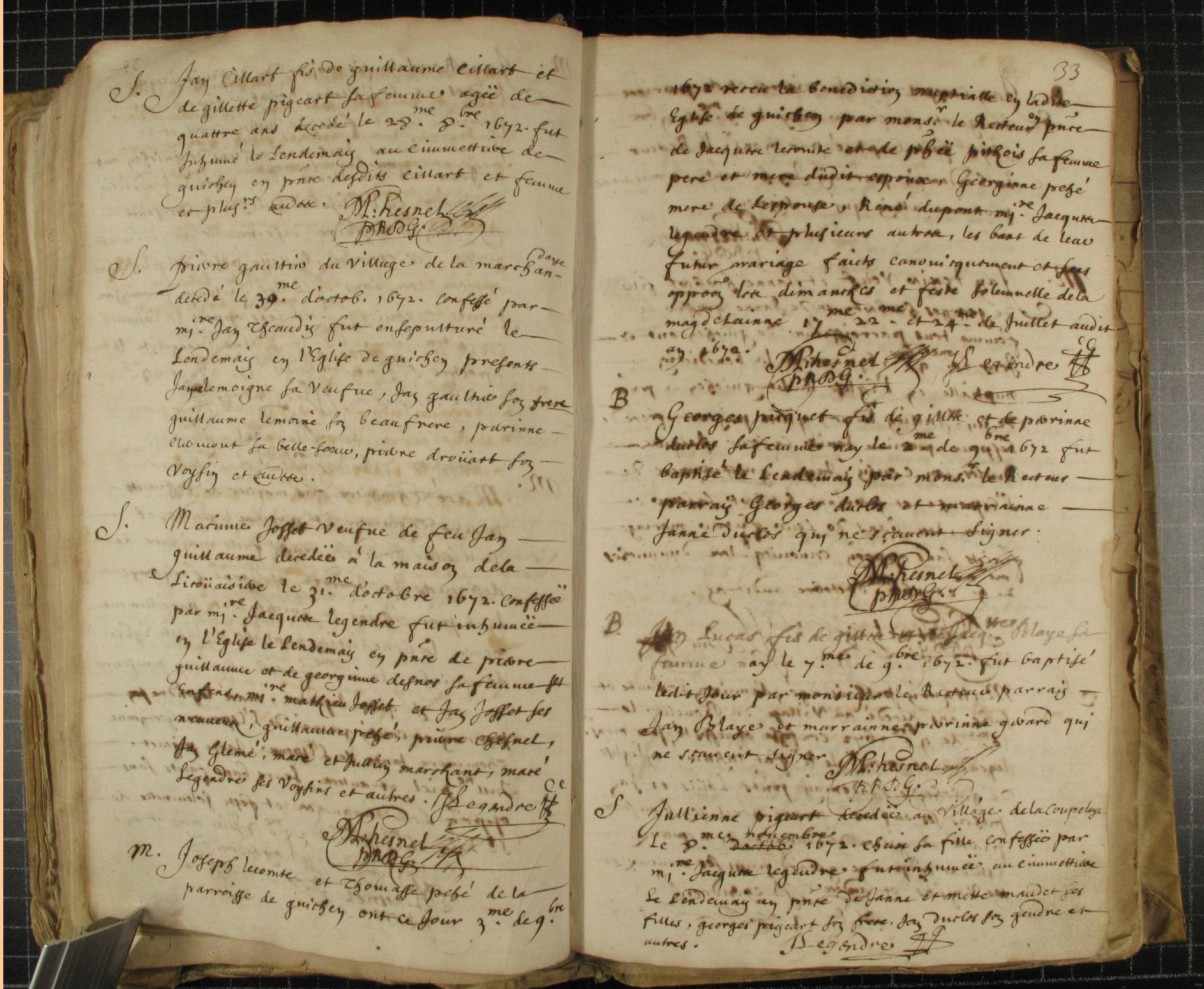 S. Jan Eillart fis de guillaume Eillart et
de gillette pigeart sa femme agéë de
quattre ans decedé le 28.me 8.bre 1672. fut
Inhumé le Lendemain au cimmettiere de
guichen en pnte desdits Eillart et femme
et plus.rs autre. M: hesnel
S. pierre gaultier du village de la marchan-
daye
decedé le 30.me d'octob. 1672. Confessé par
mi.re Jan Theaudin fut ensepulturé le
Lendemain en l'Eglise de guichen presents
Jan lemoigne sa veufve, Jan gaultier son frere
guillaume lemoine son beaufrere, perinne
sa belle-soeur, pierre droüart son
voysin et autre.
S. Josset veufve de feu Jan
guillaume decedéë à la maison dela
le 31.me d'octobre 1672. Confesséë
par mi.re Jacques legendre fut inhuméë
en l'Eglise le Lendemain en pnte de pierre
guillaume et de georginne desnos sa femme ses
Enfents, mi.re mathieu Josset et Jan Josset ses
nepveux, guillaume pezé, pierre chesnel,
Jan Glemé, macé et Jullien marchant, macé
Legendre ses voysins et autres. J Legendre
M: hesnel
M. Joseph lecomte et Thomasse pezé de la
parroisse de guichen ont ce Jour 3.me de 9.bre
33
1672 receu la benediction nuptialle en ladite
Eglise de guichen par mons.r le Recteur en pnce
de Jacques lecomte et de pithois sa femme
pere et mere dudit espoux, Georginne pezé
mere de Lespouse, René dupont mi.re Jacques
legendre et plusieurs autres, les bans de leur
futur mariage faicts canonicquement et sans
oppoon les dimanches et feste solemnelle de la
magdelainne 17.me 22.me et 24.me de Juillet audit
an 1672. M: hesnel J Legendre
B Georges picquet fis de gilles et de perinne
duclos sa femme nay le 2.me de 9.bre 1672 fut
baptisé le Lendemain par mons.r le Recteur
parrain Georges duclos et marrainne
Janne Duclos qui ne sçavent signer.
M: hesnel
B. Jan Luças fis de gilles Blaye sa
femme nay le 7.me de 9.bre 1672. fut baptisé
ledit Jour par monsieur le Recteur parrain
Jan Blaye et marrainne perinne gward qui
ne sçavent signer M: hesnel
S Jullienne pigeart decedéë au village de la Coupelaye
le 8.me novembre 1672. cheix sa fille, confesséë par
mi.re Jacques legendre fut inhuméë au cimmettiere
Le Lendemain en pnte de Janne et mette maudet ses
filles, georges pigeart son frere, Jan Duclos son gendre et
autres. J Legendre